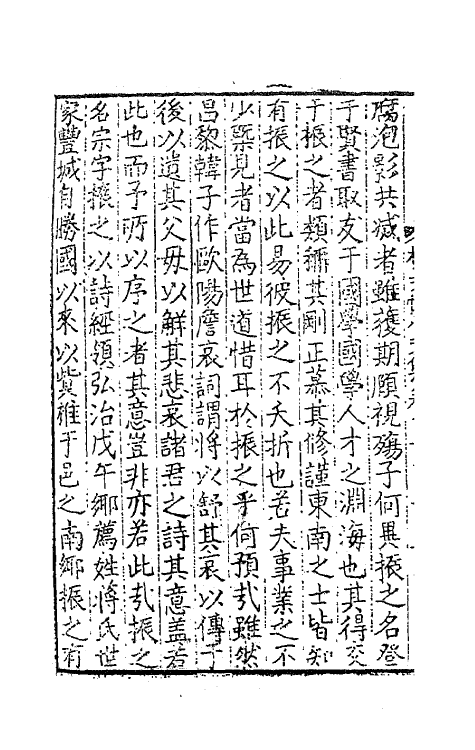 腐泡影共滅者雖獲期頤視殤子何異振之名登
于賢書取友于國學國學人才之淵海也其得交
于振之者類稱其剛正慕其修謹東南之士皆知
有振之以此易彼振之不夭折也若夫事業之不
少槩見者當為世道惜耳於振之乎何預㢤雖然
昌黎韓子作歐陽詹哀詞謂將以舒其哀以傳于
後以遺其父毋以解其悲哀諸君之詩其意盖若
此也而予所以序之者其意豈非亦若此㢤振之
名宗字振之以詩經領弘治戊午鄉薦姓蔣氏世
家豐城自勝國以來以貲雄于邑之南鄉振之有